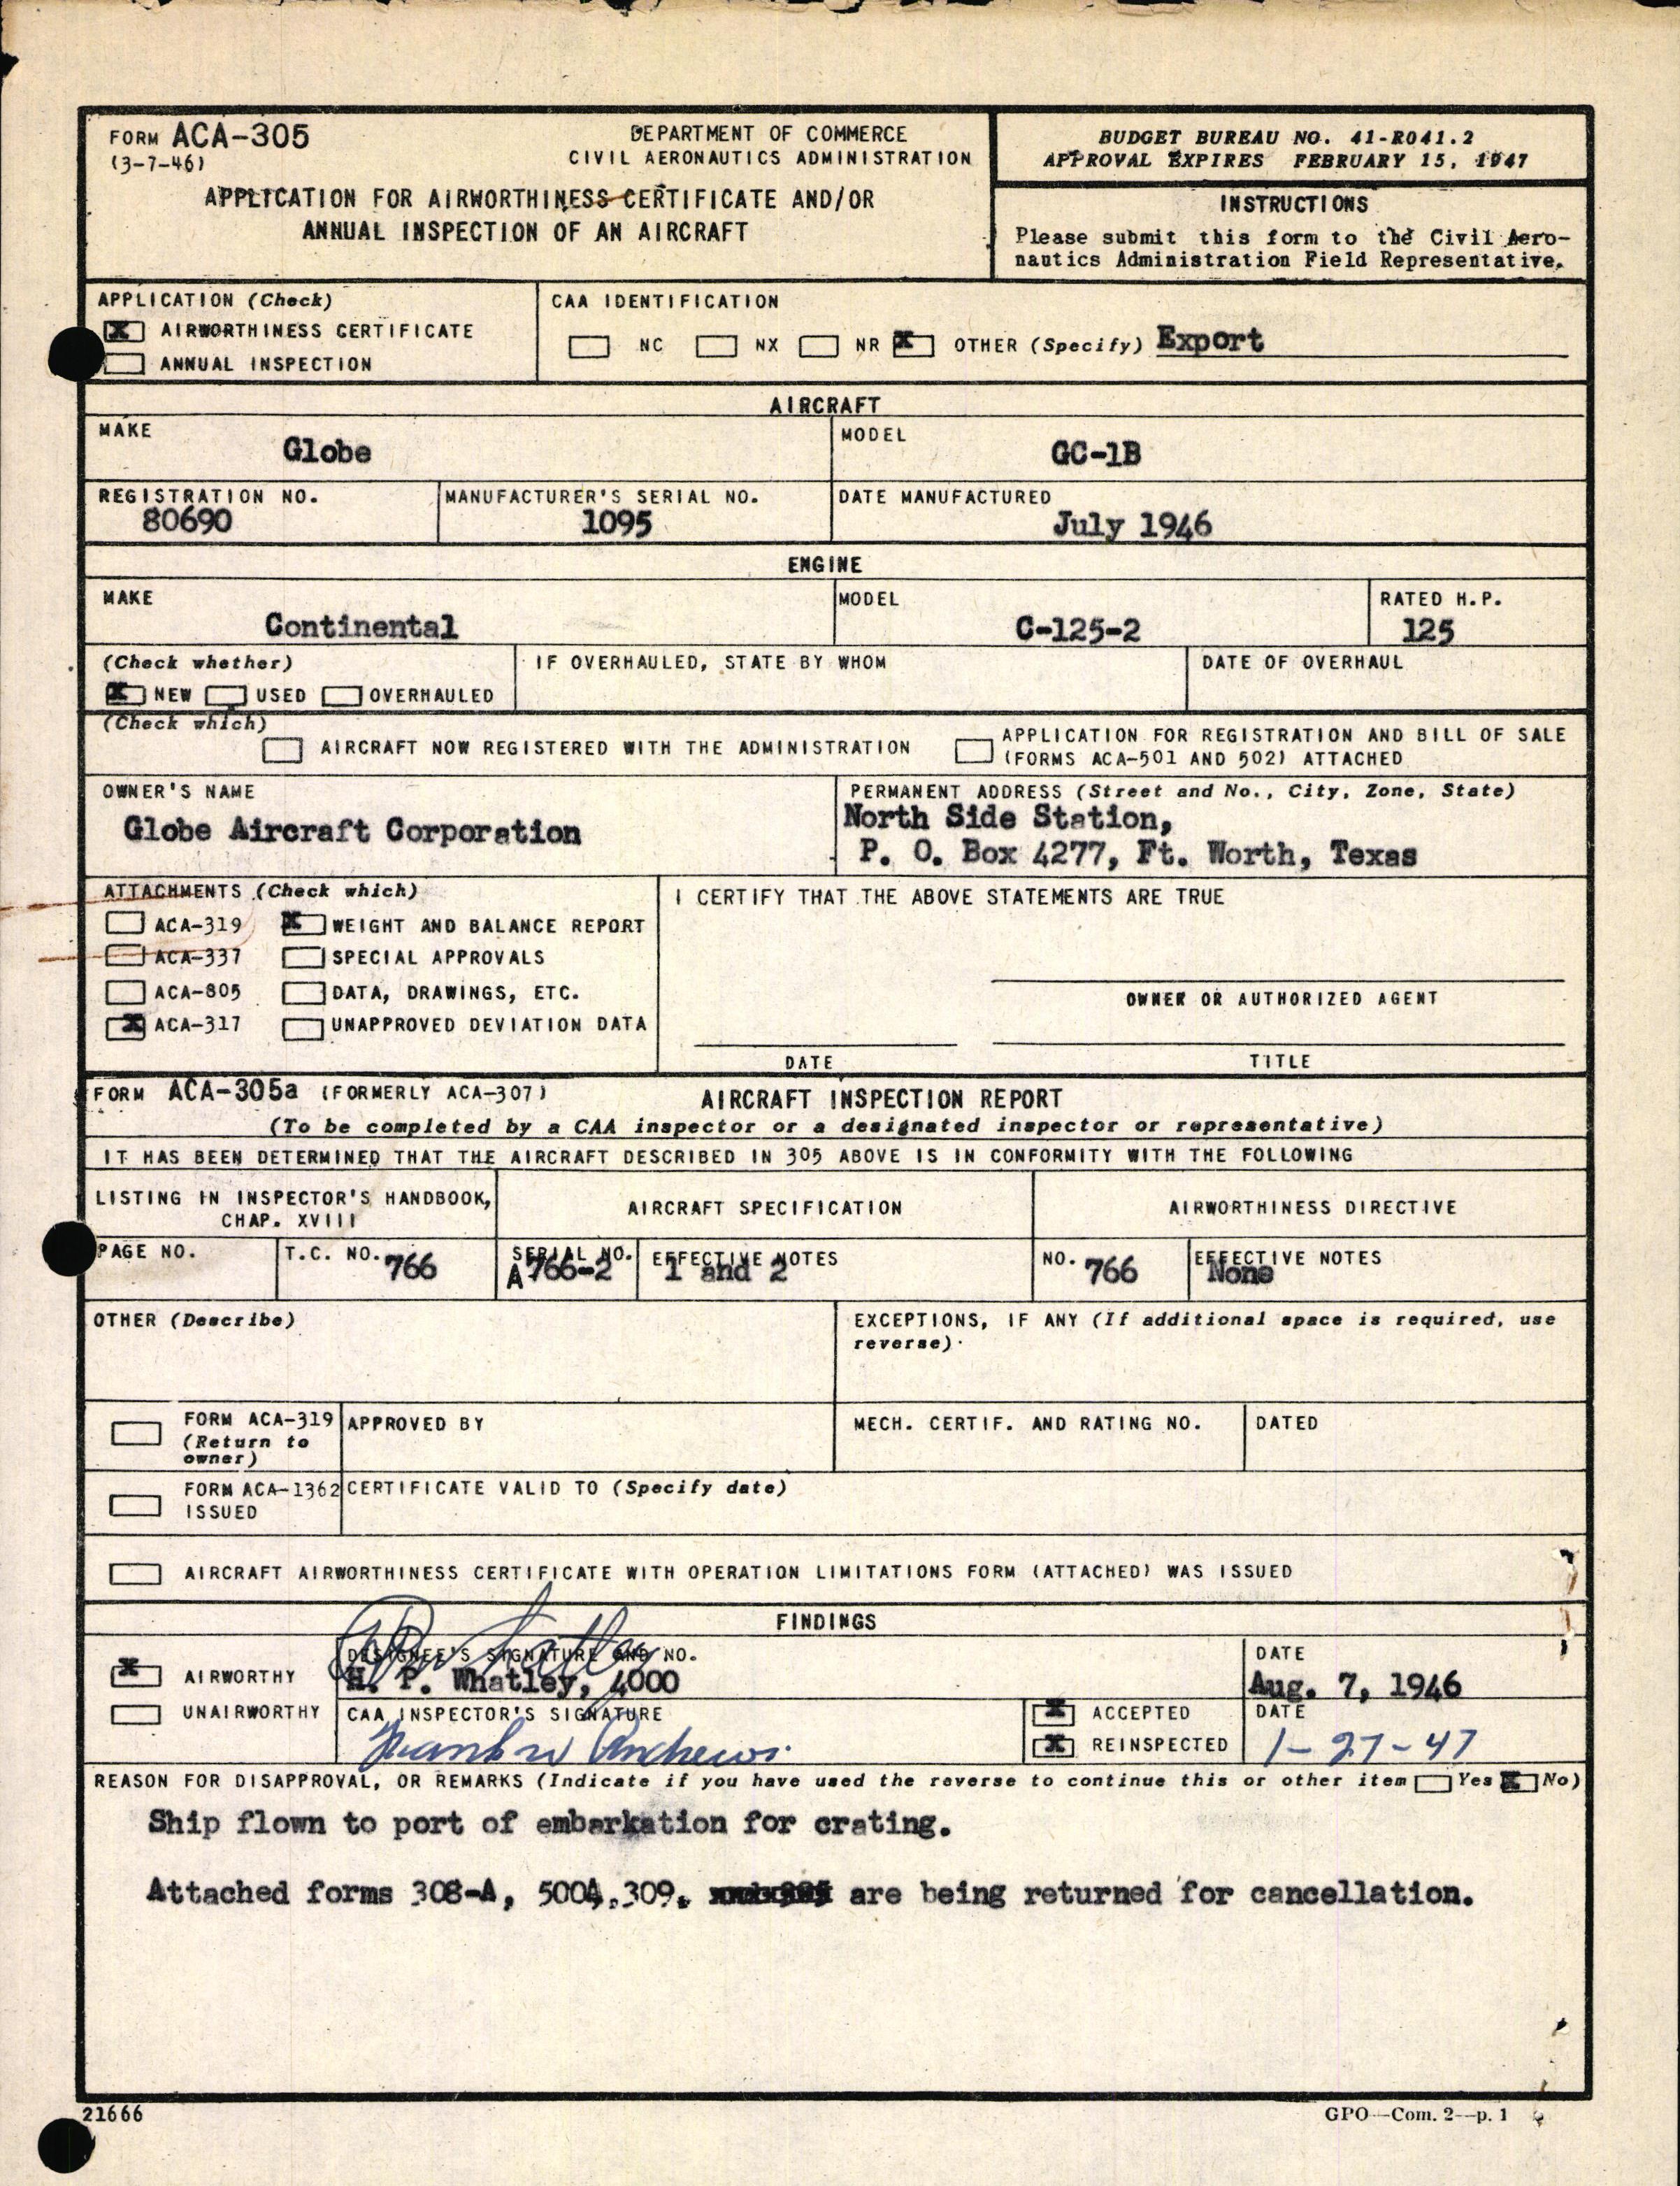 FORM ACA-305
(3-7-46)
DEPARTMENT OF COMMERCE
CIVIL AERONAUTICS ADMINISTRATION
APPLICATION FOR AIRWORTHINESS CERTIFICATE AND/OR
ANNUAL INSPECTION OF AN AIRCRAFT
BUDGET BUREAU NO. 41-R041.2
APPROVAL EXPIRES FEBRUARY 15, 1947
INSTRUCTIONS
Please submit this form to the Civil Aero-
nautics Administration Field Representative.
APPLICATION (Check)
X AIRWORTHINESS CERTIFICATE
ANNUAL INSPECTION
CAA IDENTIFICATION
NC NX NR X OTHER (Specify) Export
AIRCRAFT
MAKE
Globe
MODEL
GC-1B
REGISTRATION NO.
80690
MANUFACTURER'S SERIAL NO.
1095
DATE MANUFACTURED
July 1946
ENGINE
MAKE
Continental
MODEL
C-125-2
RATED H.P.
125
(Check whether)
X NEW USED OVERHAULED
IF OVERHAULED, STATE BY WHOM
DATE OF OVERHAUL
(Check which)
AIRCRAFT NOW REGISTERED WITH THE ADMINISTRATION
APPLICATION FOR REGISTRATION AND BILL OF SALE
(FORMS ACA-501 AND 502) ATTACHED
OWNER'S NAME
Globe Aircraft Corporation
PERMANENT ADDRESS (Street and No., City, Zone, State)
North Side Station,
P. O. Box 4277, Ft. Worth, Texas
ATTACHMENTS (Check which)
ACA-319 X WEIGHT AND BALANCE REPORT
ACA-337 SPECIAL APPROVALS
ACA-805 DATA, DRAWINGS, ETC.
X ACA-317 UNAPPROVED DEVIATION DATA
I CERTIFY THAT THE ABOVE STATEMENTS ARE TRUE
OWNER OR AUTHORIZED AGENT
DATE
TITLE
FORM ACA-305a (FORMERLY ACA-307)
AIRCRAFT INSPECTION REPORT
(To be completed by a CAA inspector or a designated inspector or representative)
IT HAS BEEN DETERMINED THAT THE AIRCRAFT DESCRIBED IN 305 ABOVE IS IN CONFORMITY WITH THE FOLLOWING
LISTING IN INSPECTOR'S HANDBOOK,
CHAP. XVIII
AIRCRAFT SPECIFICATION
AIRWORTHINESS DIRECTIVE
PAGE NO.
T.C. NO. 766
SERIAL NO.
A 766-2
EFFECTIVE NOTES
1 and 2
NO. 766
EFFECTIVE NOTES
None
OTHER (Describe)
EXCEPTIONS, IF ANY (If additional space is required, use
reverse).
FORM ACA-319
(Return to
owner)
APPROVED BY
MECH. CERTIF. AND RATING NO.
DATED
FORM ACA-1362
ISSUED
CERTIFICATE VALID TO (Specify date)
AIRCRAFT AIRWORTHINESS CERTIFICATE WITH OPERATION LIMITATIONS FORM (ATTACHED) WAS ISSUED
FINDINGS
X AIRWORTHY
UNAIRWORTHY
DESIGNEE'S SIGNATURE AND NO.
H. P. Whatley, 4000
DATE
Aug. 7, 1946
CAA INSPECTOR'S SIGNATURE
Andrews
X ACCEPTED
X REINSPECTED
DATE
1-27-47
REASON FOR DISAPPROVAL, OR REMARKS (Indicate if you have used the reverse to continue this or other item Yes X No)
Ship flown to port of embarkation for crating.
Attached forms 308-A, 500A, 309, are being returned for cancellation.
21666
GPO—Com. 2—p. 1